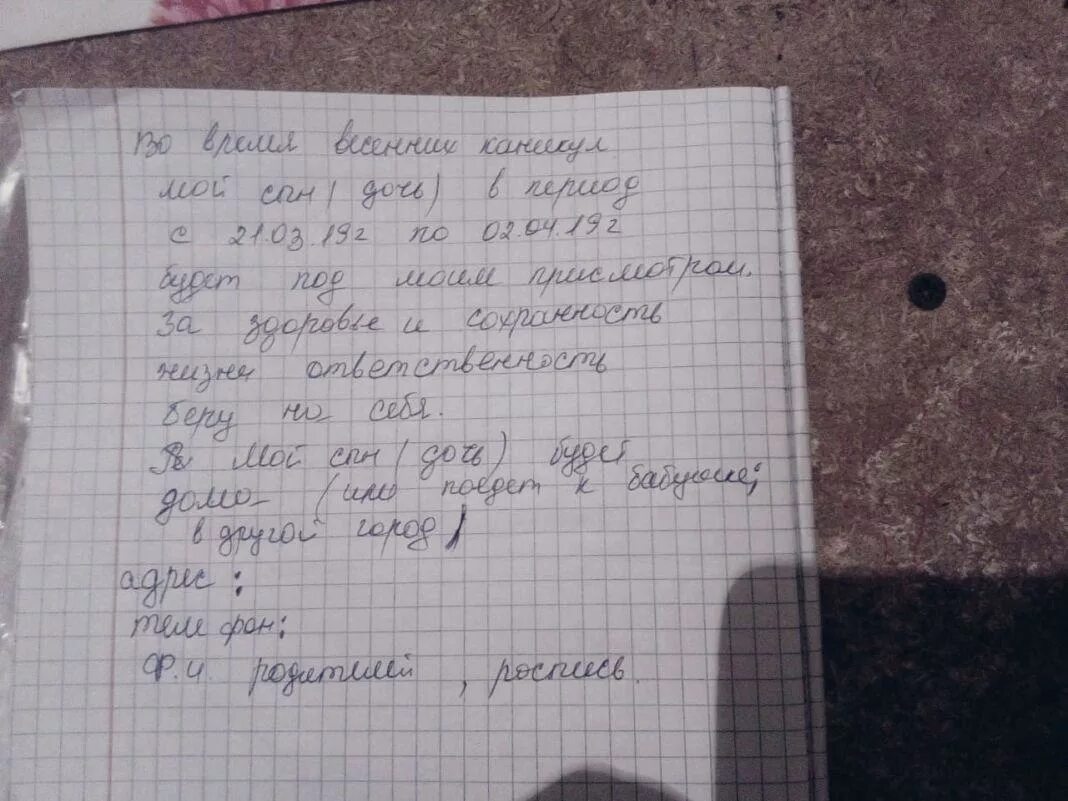 Во время весенних каникул
мой сын (дочь) в период
с 21.03.19г по 02.04.19г
будет под моим присмотром.
За здоровье и сохранность
жизни ответственность
беру на себя.
Мой сын (дочь) будет
дома (или поедет к бабушке;
в другой город)
адрес:
телефон:
Ф.И. родителей, роспись.